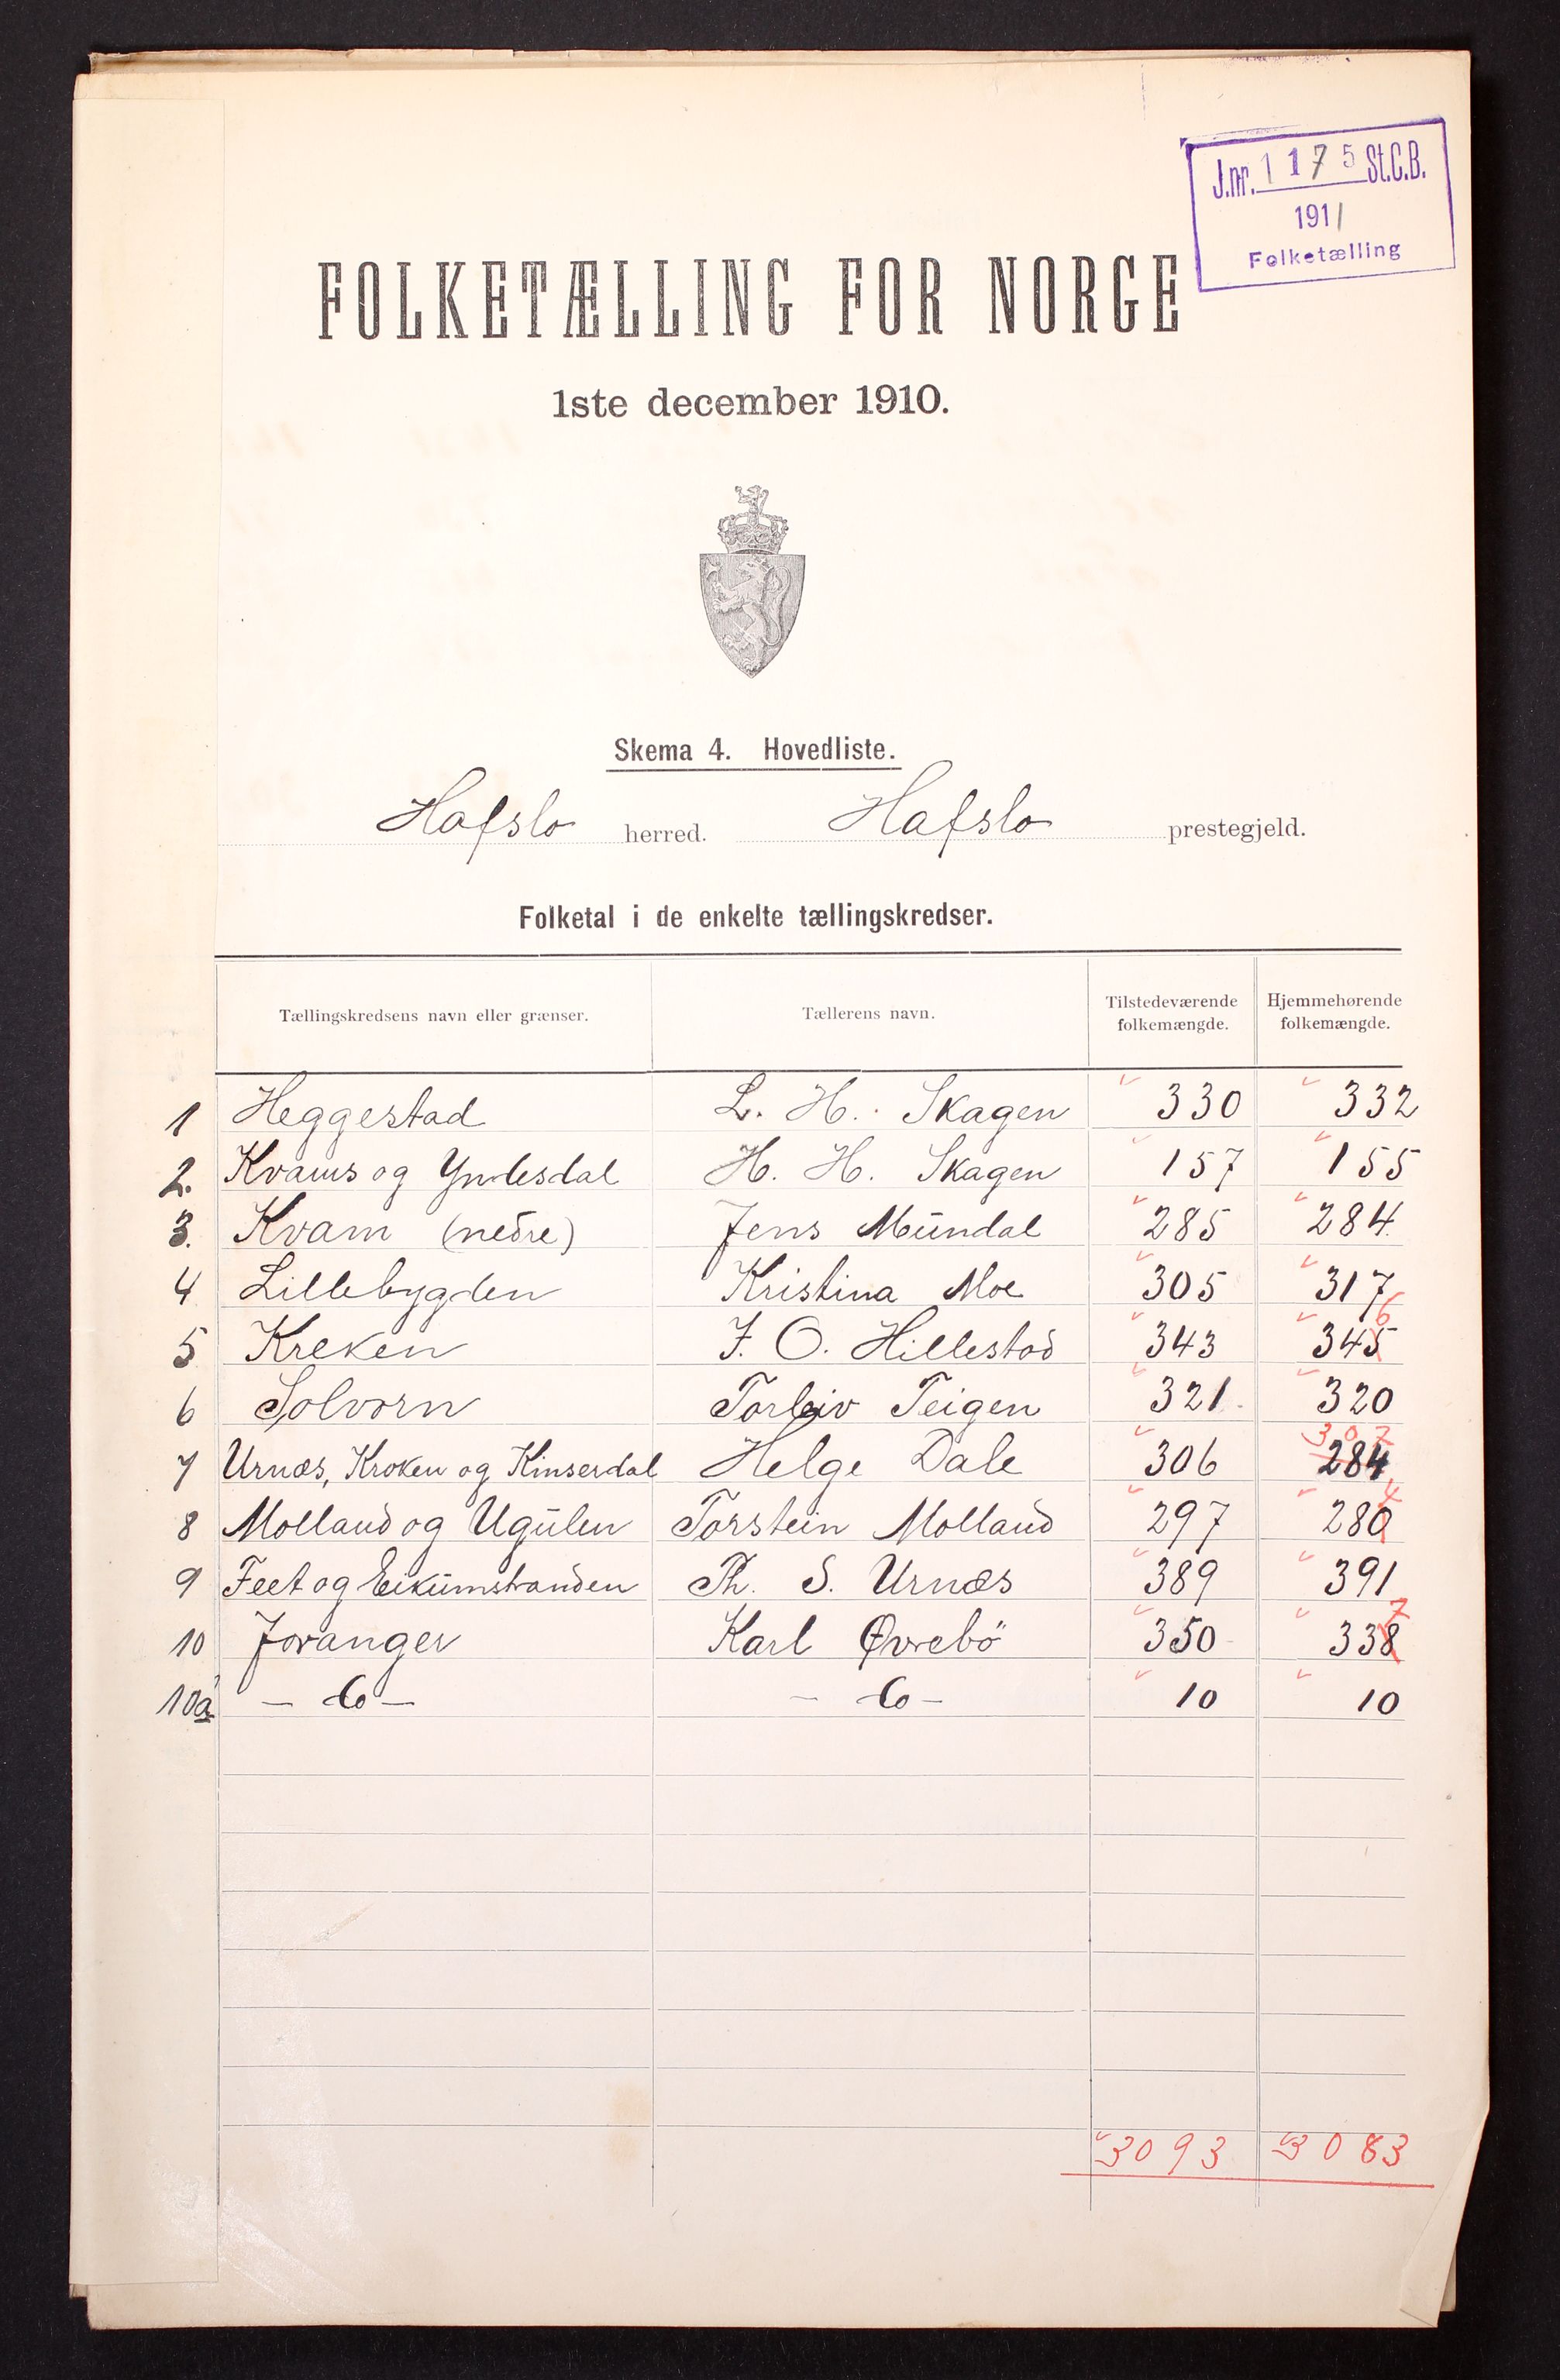 J.nr. 1175 St.C.B.
1911
Folketælling
FOLKETÆLLING FOR NORGE
1ste december 1910.
Skema 4. Hovedliste.
Hafslo herred. Hafslo prestegjeld.
Folketal i de enkelte tællingskredser.
Tællingskredsens navn eller grænser. Tællerens navn. Tilstedeværende folkemængde. Hjemmehørende folkemængde.
1 Heggestad L. H. Skagen 330 332
2. Kvams og Yndesdal H. H. Skagen 157 155
3. Kvam (nedre) Jens Mundal 285 284
4 Lillebygden Kristina Moe 305 317
5 Kreken J. O. Hillestad 343 345 6
6 Solvorn Torleiv Teigen 321 320
7 Urnæs, Kroken og Kinserdal Helge Dale 306 284 307
8 Molland og Ugulen Torstein Molland 297 280 4
9 Feet og Eikumstranden Th. S. Urnæs 389 391
10 Joranger Karl Øvrebö 350 338 7
10a — do — — do — 10 10
3093 3083